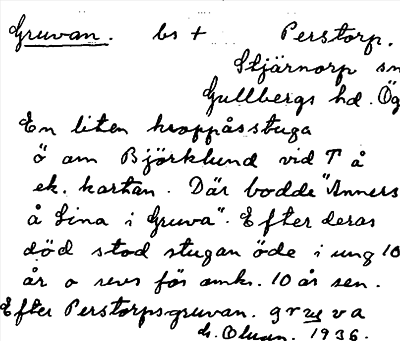 Gruvan. bs + Perstorp.
Stjärnorp sn
Gullbergs hd. Ög
En liten kroppåsstuga
ö om Björklund vid T å
ek. kartan. Där bodde "Anners
å Lina i Gruva". Efter deras
död stod stugan öde i ung 10
år o revs för omkr. 10 år sen.
Efter Perstorpsgruvan. gruva
1936.